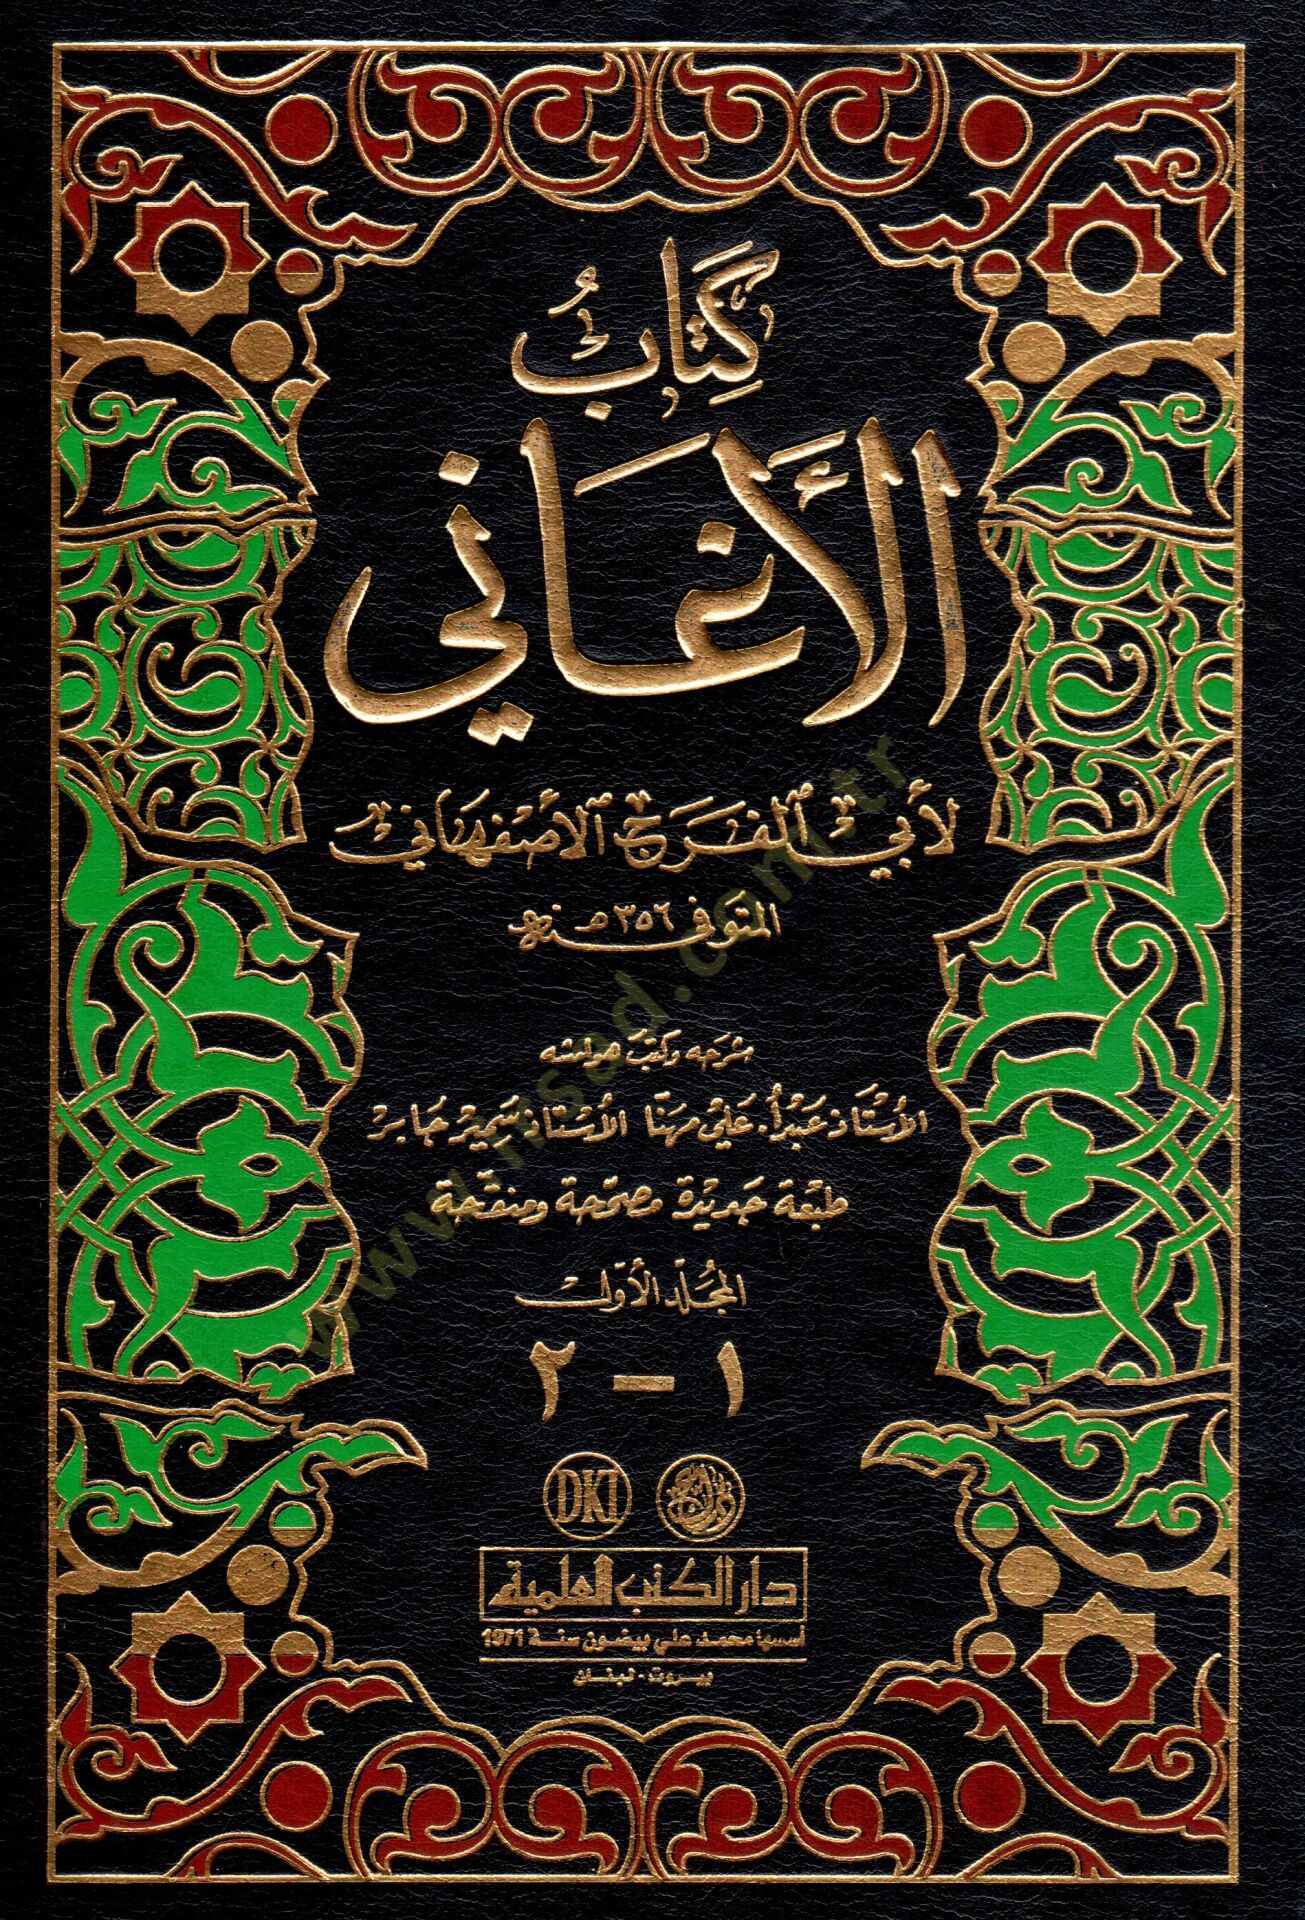 كِتَابُ
الأَغَاني
لأبي الفرج الأصفهاني
المتوفى سنة ٣٥٦ هـ
شرحه وكتب هوامشه
الأستاذ عبد أ. علي مهنا الأستاذ سمير جابر
طبعة جديدة مصححة ومنقحة
المجلد الأول
١ - ٢
DKI
دار الكتب العلمية
أسسها محمد علي بيضون سنة 1971
بيروت - لبنان
www.hisad.com.tr